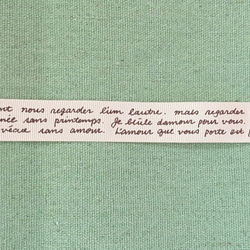 nt nous regarder l'um lautre. mais regarder
née sans printemps. Je blüle damour pour vous.
vécue sans amour. L'amour que vous porte est